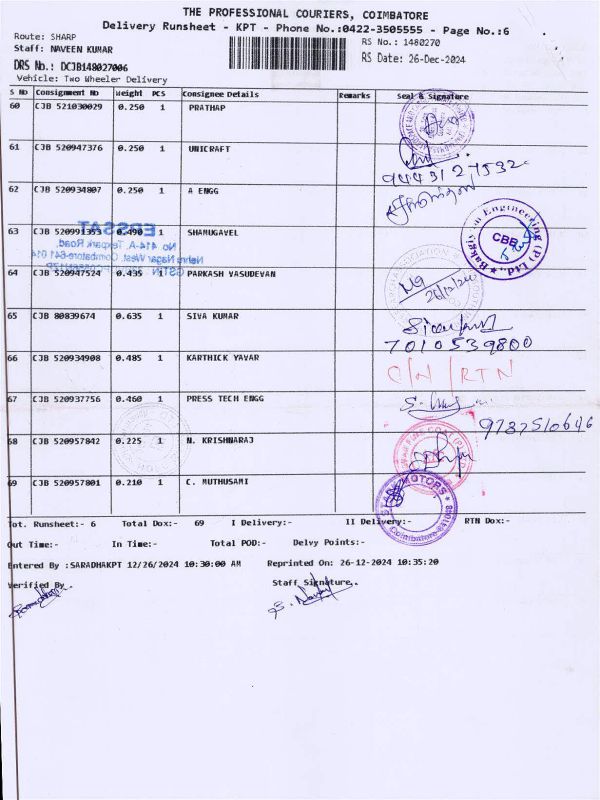 THE PROFESSIONAL COURIERS, COIMBATORE
Delivery Runsheet - KPT - Phone No.:0422-3505555 - Page No.:6
Route: SHARP
RS No.: 1480270
Staff: NAVEEN KUMAR
RS Date: 26-Dec-2024
DRS No.: DCJB148027006
Vehicle: Two Wheeler Delivery
S No Consignment No Weight PCS Consignee Details Remarks Seal & Signature
60 CJB 521030029 0.250 1 PRATHAP
61 CJB 520947376 0.250 1 UNICRAFT
9443127532
62 CJB 520934807 0.250 1 A ENGG
63 CJB 520991353 0.490 1 SHANUGAVEL
ERSSAT
No 414-A, Texpark Road,
Nehru Nagar West, Coimbatore-641 014
Bakgiyam Engineering (P) Ltd.,
CBE
64 CJB 520947524 0.435 1 PARKASH VASUDEVAN
26/12/24
65 CJB 80839674 0.635 1 SIVA KUMAR
7010539800
66 CJB 520934908 0.485 1 KARTHICK YAVAR
C/N / RTN
67 CJB 520937756 0.460 1 PRESS TECH ENGG
9787510646
68 CJB 520957842 0.225 1 N. KRISHNARAJ
69 CJB 520957801 0.210 1 C. MUTHUSAMI
MOTORS
Coimbatore
Tot. Runsheet:- 6 Total Dox:- 69 I Delivery:- II Delivery:- RTN Dox:-
Out Time:- In Time:- Total POD:- Delvy Points:-
Entered By :SARADHAKPT 12/26/2024 10:30:00 AM Reprinted On: 26-12-2024 10:35:20
Verified By
Staff Signature.